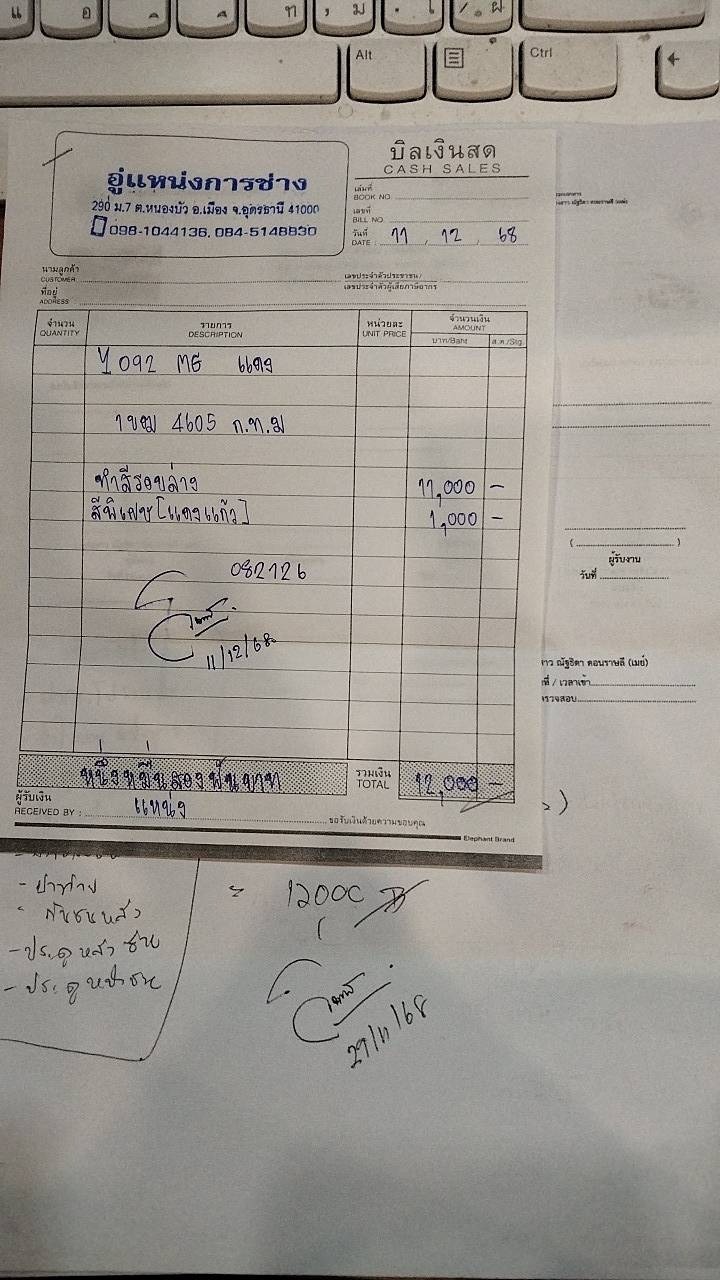 Alt
Ctrl
อู่แหน่งการช่าง
290 ม.7 ต.หนองบัว อ.เมือง จ.อุดรธานี 41000
098-1044136, 084-5148830
บิลเงินสด
CASH SALES
เล่มที่
BOOK NO.
เลขที่
BILL NO.
วันที่
DATE : 11 , 12 , 68
นามลูกค้า
CUSTOMER
เลขประจำตัวประชาชน/
เลขประจำตัวผู้เสียภาษีอากร
ที่อยู่
ADDRESS
จำนวน
QUANTITY
รายการ
DESCRIPTION
หน่วยละ
UNIT PRICE
จำนวนเงิน
AMOUNT
บาท/Baht
ส.ต./Stg.
092 MG แดง
1ขฆ 4605 ก.ท.ม
ทำสีรอบล่าง 11,000 –
สีพิเศษ [แดงแก้ว] 1,000 –
082126
11/12/68
หนึ่งหมื่นสองพันบาท
รวมเงิน
TOTAL
12,000 –
ผู้รับเงิน
RECEIVED BY : แหน่ง
ขอรับเงินด้วยความขอบคุณ
Elephant Brand
(
)
ผู้รับงาน
วันที่
าว ณัฐธิดา ดอนราษลี (เมย์)
ที่ / เวลาเข้า
ตรวจสอบ
- ฝาท้าย
กันชนหลัง
- ประตูหลังซ้าย
= 12000
29/11/68